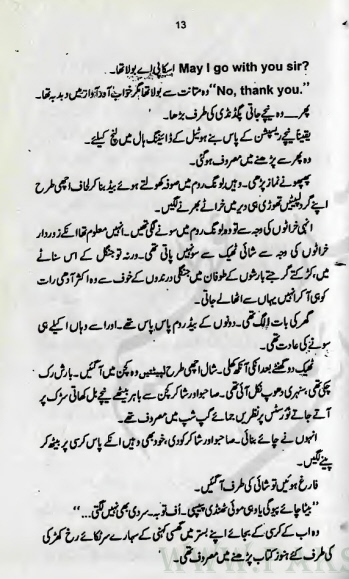 13
May I go with you sir? اسکائی اے بولا تھا۔
"No, thank you." وہ متانت سے بولا تھا مگر خواب آور آواز میں دبدبہ تھا۔
پھر ــــ وہ نیچے جاتی پگڈنڈی کی طرف بڑھا۔
یقیناً نیچے ریسپشن کے پاس بنے ہوٹیل کے ڈائیننگ ہال میں لنچ کیلئے۔
وہ پھر سے پڑھنے میں مصروف ہو گئی۔
پھپھو نے نماز پڑھی۔ وہیں لیونگ روم میں صوفہ کھولتے ہوئے بیڈ بنا کر لحاف اچھی طرح
اپنے گرد لپیٹیں تھوڑی ہی دیر میں خراٹے بھرنے لگیں۔
انہی خراٹوں کی وجہ سے تو وہ لیونگ روم میں سونے لگی تھیں۔ انہیں معلوم تھا انکے زوردار
خراٹوں کی وجہ سے شائی ٹھیک سے سو نہیں پاتی تھی۔ ورنہ تو جنگل کے اس سناٹے
میں، کڑکتے گرجتے بارشوں کے طوفان میں جنگلی درندوں کے خوف سے وہ اکثر آدھی رات
کو ہی آ کر انہیں یہاں سے اٹھا لے جاتی۔
گھر کی بات الگ تھی۔ دونوں کے بیڈ روم پاس پاس تھے۔ اور اسے وہاں اکیلے ہی
سونے کی عادت تھی۔
ٹھیک دو گھنٹے بعد انکی آنکھ کھلی۔ شال اچھی طرح لپیٹتیں وہ کچن میں آ گئیں۔ بارش رک
چکی تھی، سنہری دھوپ نکل آئی تھی۔ صاحبو اور شاکر کچن سے باہر بیٹھے نیچے بل کھاتی سڑک پر
آتے جاتے ٹورسٹس پر نظریں جمائے گپ شپ میں مصروف تھے۔
انہوں نے چائے بنائی۔ صاحبو اور شاکر کو دی، خود بھی وہیں انکے پاس کرسی پر بیٹھ کر
پینے لگیں۔
فارغ ہوئیں تو شائی کی طرف آ گئیں۔
"بیٹا چائے پیو گی یا وہی موئی ٹھنڈی پیپسی۔ اُف توبہ۔ سردی بھی نہیں لگتی…"
وہ اب کے کرسی کے بجائے اپنے بستر میں گھسی کہنی کے سہارے سر ٹکائے رخ کھڑکی
کی طرف کئے ہنوز کتاب پڑھنے میں مصروف تھی۔